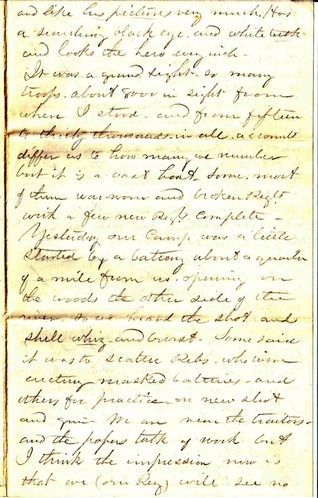 and like his pictures very much. Has
a searching black eye. and white teeth
and looks the hero every inch -
It was a grand sight. so many
troops. about 8000 in sight from
where I stood. and from fifteen
to thirty thousand in all. accounts
differ as to how many we number
but it is a vast host some. most
of them war worn and broken Regts
with a few new Regts complete -
Yesterday our Camp was a little
startled by a battery about a quarter
of a mile from us. opening on
the woods the other side of the
river we heard the shot and
shell whiz and burst. Some said
it was to scatter Rebs. who were
erecting masked batteries - and
others for practice on new shot
and guns - We are near the traitors -
and the papers talk of work but
I think the impression now is
that we (our Reg) will see no